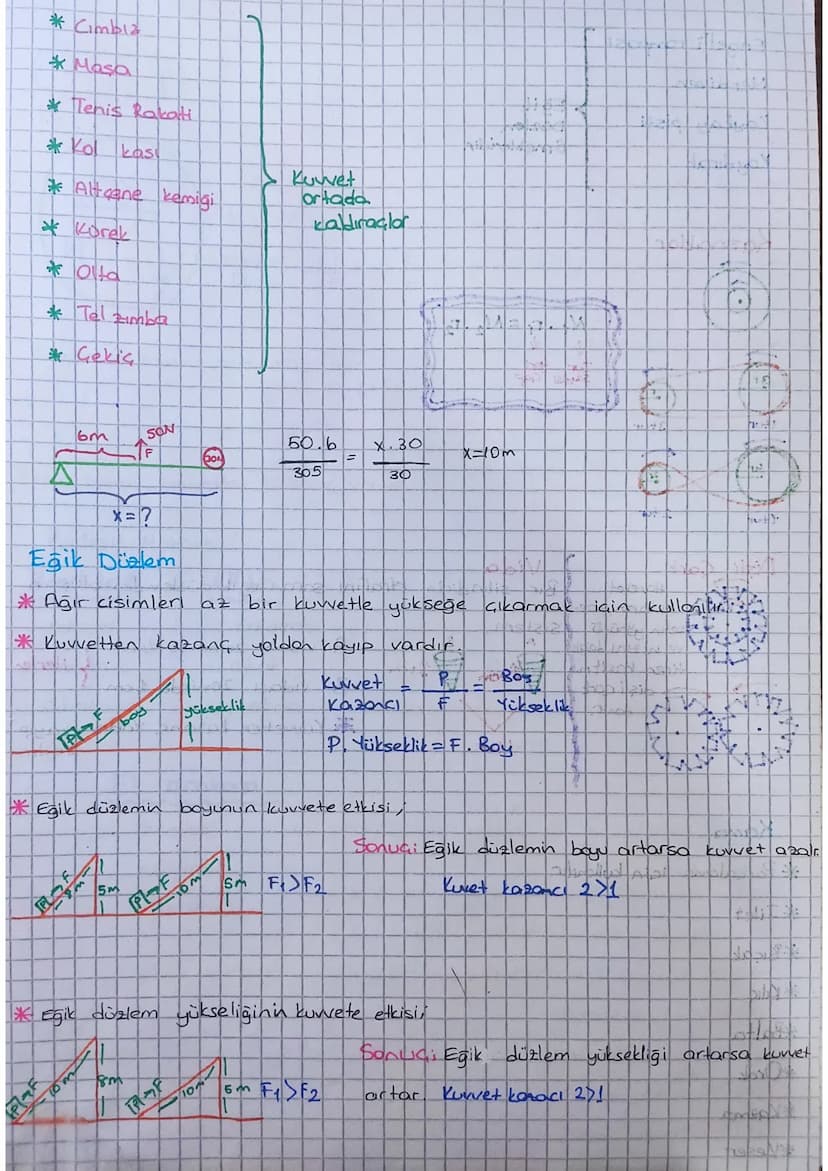 * Cımbız
* Maşa
* Tenis Raketi
* Kol kası
* Altçene kemiği
* Kürek
* Olta
* Tel zımba
* Çekiç
Kuvvet
ortada
kaldıraçlar
6m
50N
F
30N
x=?
50.6 / 305 = x.30 / 30
x=10m
Eğik Düzlem
* Ağır cisimleri az bir kuvvetle yükseğe çıkarmak için kullanılır.
* Kuvvetten kazanç yoldan kayıp vardır.
P→F
boy
yükseklik
Kuvvet Kazancı = P / F = Boy / Yükseklik
P. Yükseklik = F. Boy
* Eğik düzlemin boyunun kuvvete etkisi;
Sonuç: Eğik düzlemin boyu artarsa kuvvet azalır.
P→F
8m
5m
P→F
10m
5m
F₁>F₂
Kuvet kazancı 2>1
* Eğik düzlem yükseliğinin kuvvete etkisi;
Sonuç: Eğik düzlem yüksekliği artarsa kuvvet
artar. Kuvvet kazacı 2>1
P→F
10m
8m
P→F
10m
6m
F₁>F₂